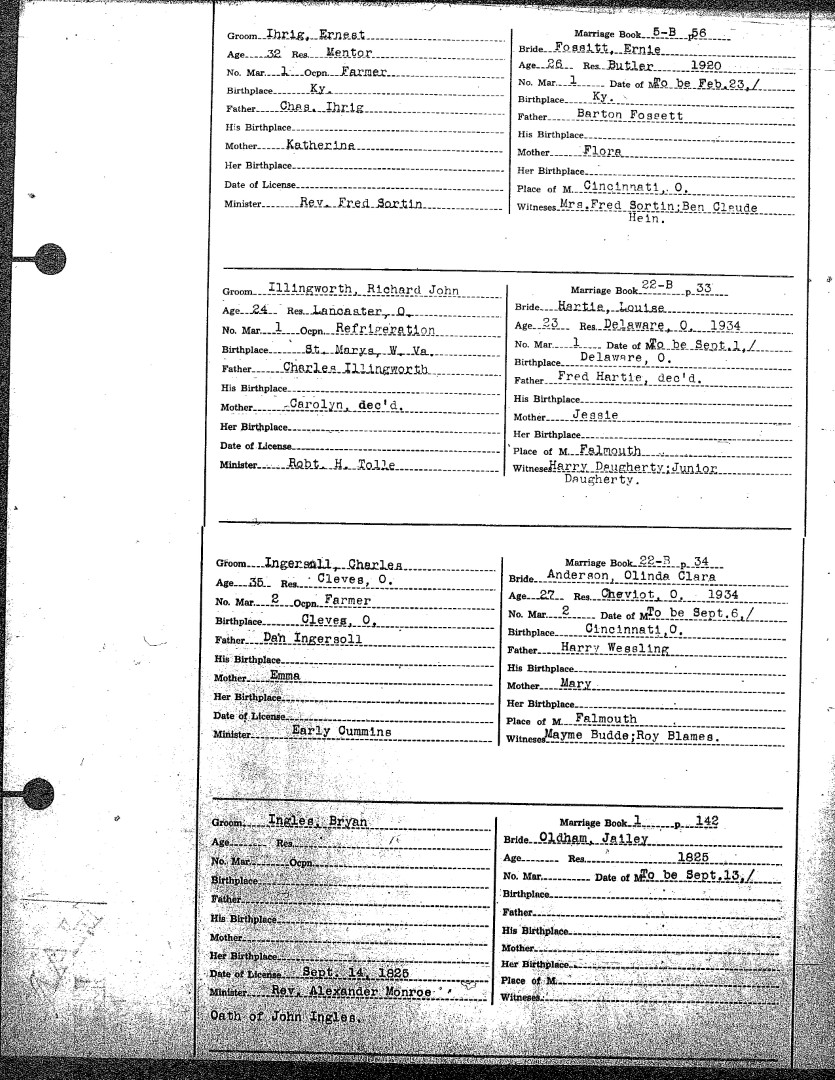 Groom Ihrig, Ernest
Age 32 Res. Mentor
No. Mar. 1 Ocpn. Farmer
Birthplace Ky.
Father Chas. Ihrig
His Birthplace
Mother Katherine
Her Birthplace
Date of License
Minister Rev. Fred Sortin
Marriage Book 5-B p56
Bride Fossitt, Ernie
Age 26 Res. Butler 1920
No. Mar. 1 Date of M To be Feb.23,/
Birthplace Ky.
Father Barton Fossett
His Birthplace
Mother Flora
Her Birthplace
Place of M. Cincinnati, O.
Witneses Mrs.Fred Sortin;Ben Claude
Hein.
Groom Illingworth, Richard John
Age 24 Res. Lancaster, O.
No. Mar. 1 Ocpn. Refrigeration
Birthplace St. Marys, W. Va.
Father Charles Illingworth
His Birthplace
Mother Carolyn, dec'd.
Her Birthplace
Date of License
Minister Robt. H. Tolle
Marriage Book 22-B p 33
Bride Hartie, Louise
Age 23 Res. Delaware, O. 1934
No. Mar. 1 Date of M To be Sept.1,/
Birthplace Delaware, O.
Father Fred Hartie, dec'd.
His Birthplace
Mother Jessie
Her Birthplace
Place of M. Falmouth
Witneses Harry Daugherty;Junior
Daugherty.
Groom Ingersoll, Charles
Age 35 Res. Cleves, O.
No. Mar. 2 Ocpn. Farmer
Birthplace Cleves, O.
Father Dan Ingersoll
His Birthplace
Mother Emma
Her Birthplace
Date of License
Minister Early Cummins
Marriage Book 22-B p. 34
Bride Anderson, Olinda Clara
Age 27 Res. Cheviot, O. 1934
No. Mar. 2 Date of M To be Sept.6,/
Birthplace Cincinnati,O.
Father Harry Wessling
His Birthplace
Mother Mary
Her Birthplace
Place of M. Falmouth
Witneses Mayme Budde;Roy Blames.
Groom Ingles, Bryan
Age Res.
No. Mar. Ocpn.
Birthplace
Father
His Birthplace
Mother
Her Birthplace
Date of License Sept. 14, 1825
Minister Rev. Alexander Monroe
Oath of John Ingles.
Marriage Book 1 p. 142
Bride Oldham, Jailey
Age Res. 1825
No. Mar. Date of M To be Sept.13,/
Birthplace
Father
His Birthplace
Mother
Her Birthplace
Place of M.
Witneses